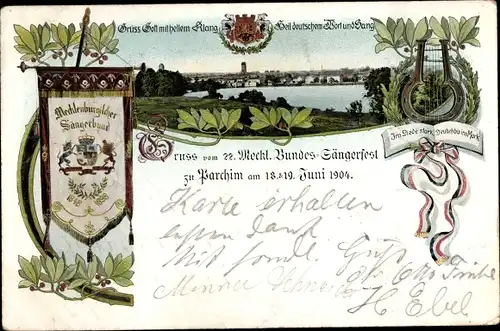 Grüss Gott mit hellem Klang Heil deutschem Wort und Sang
Mecklenburgischer
Sängerbund
Im Liede stark, Deutsch bis ins Mark
Gruss vom 22. Meckl. Bundes-Sängerfest
zu Parchim am 18.&19. Juni 1904.
Karte erhalten
besten Dank
Mit Gruß Otto
Männer
H. Ebel